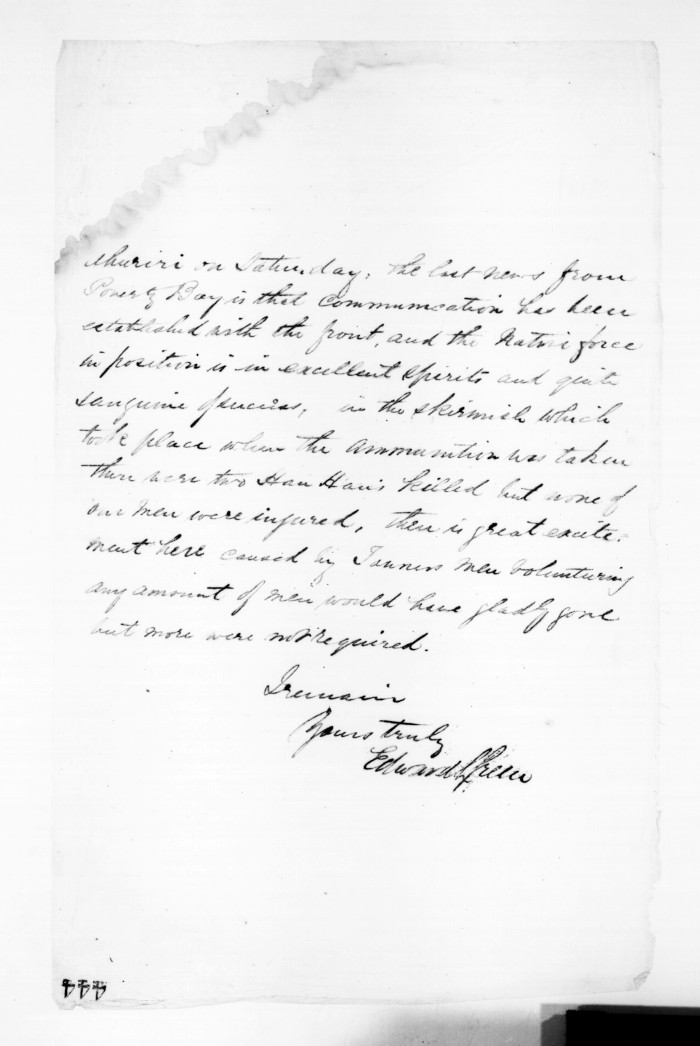 Ahuriri on Saturday. the last news from
Poverty Bay is that communication has been
established with the front, and the Native force
in position is in excellent spirits and quite
sanguine of success, in the skirmish which
took place when the ammunition was taken
there were two Hau Hau's killed but none of
our men were injured, there is great excite-
ment here caused by Tanners men volunturing
any amount of men would have gladly gone
but more were not required.
I remain
Yours truly
Edward Green